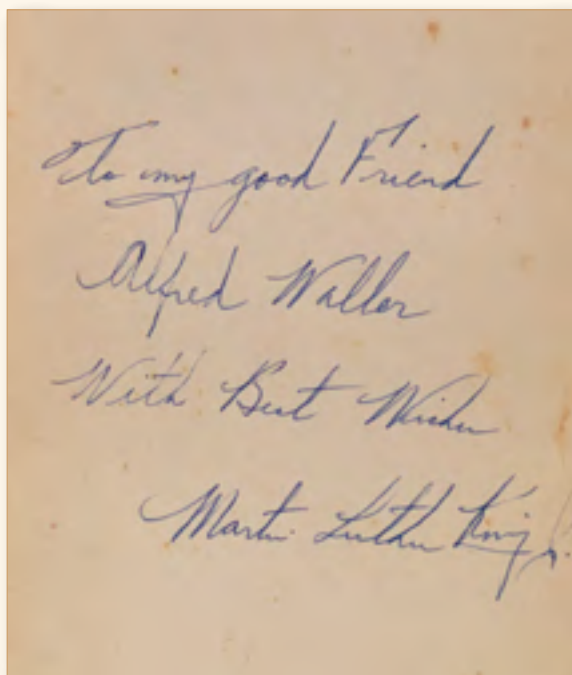 To my good Friend
Alfred Waller
With Best Wishes
Martin Luther King Jr.